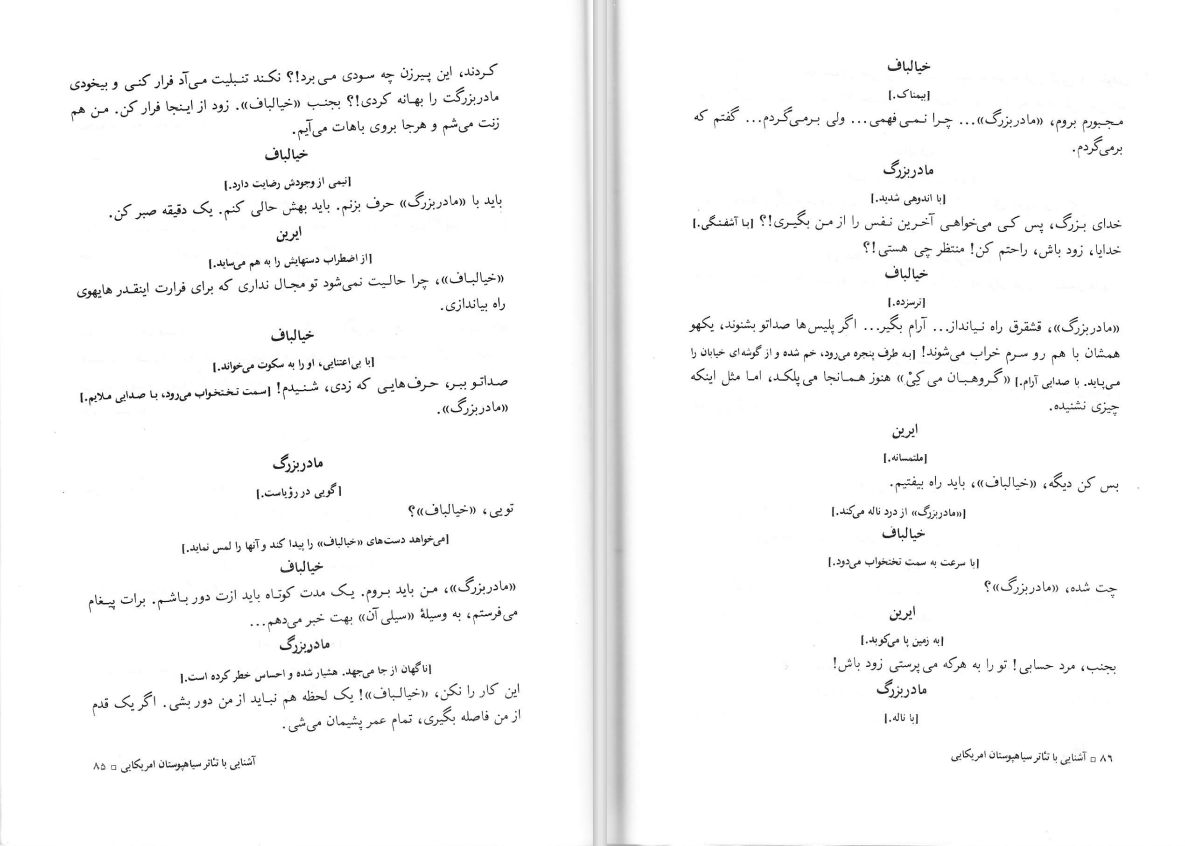 کردند، این پیرزن چه سودی می‌برد!؟ نکند تنبلیت می‌آد فرار کنی و بیخودی
مادربزرگت را بهانه کردی!؟ بجنب «خیالباف». زود از اینجا فرار کن. من هم
زنت می‌شم و هرجا بروی باهات می‌آیم.
خیالباف
[نیمی از وجودش رضایت دارد.]
باید با «مادربزرگ» حرف بزنم. باید بهش حالی کنم. یک دقیقه صبر کن.
ایرین
[از اضطراب دستهایش را به هم می‌ساید.]
«خیالباف»، چرا حالیت نمی‌شود تو مجال نداری که برای فرارت اینقدر هایهوی
راه بیاندازی.
خیالباف
[با بی‌اعتنایی، او را به سکوت می‌خواند.]
صداتو ببر، حرف‌هایی که زدی، شنیدم! [سمت تختخواب می‌رود، با صدایی ملایم.]
«مادربزرگ».
مادربزرگ
[گویی در رؤیاست.]
تویی، «خیالباف»؟
[می‌خواهد دست‌های «خیالباف» را پیدا کند و آنها را لمس نماید.]
خیالباف
«مادربزرگ»، من باید بروم. یک مدت کوتاه باید ازت دور باشم. برات پیغام
می‌فرستم، به وسیلۀ «سیلی آن» بهت خبر می‌دهم...
مادربزرگ
[ناگهان از جا می‌جهد. هشیار شده و احساس خطر کرده است.]
این کار را نکن، «خیالباف»! یک لحظه هم نباید از من دور بشی. اگر یک قدم
از من فاصله بگیری، تمام عمر پشیمان می‌شی.
آشنایی با تئاتر سیاهپوستان امریکایی □ ۸۵
خیالباف
[بیمناک.]
مجبورم بروم، «مادربزرگ»... چرا نمی‌فهمی... ولی برمی‌گردم... گفتم که
برمی‌گردم.
مادربزرگ
[با اندوهی شدید.]
خدای بزرگ، پس کی می‌خواهی آخرین نفس را از من بگیری!؟ [با آشفتگی.]
خدایا، زود باش، راحتم کن! منتظر چی هستی!؟
خیالباف
[ترسزده.]
«مادربزرگ»، قشقرق راه نیانداز... آرام بگیر... اگر پلیس‌ها صداتو بشنوند، یکهو
همشان با هم رو سرم خراب می‌شوند! [به طرف پنجره می‌رود، خم شده و از گوشه‌ای خیابان را
می‌پاید. با صدایی آرام.] «گروهبان می کِیْ» هنوز همانجا می‌پلکد، اما مثل اینکه
چیزی نشنیده.
ایرین
[ملتمسانه.]
بس کن دیگه، «خیالباف»، باید راه بیفتیم.
[«مادربزرگ» از درد ناله می‌کند.]
خیالباف
[با سرعت به سمت تختخواب می‌دود.]
چت شده، «مادربزرگ»؟
ایرین
[به زمین پا می‌کوبد.]
بجنب، مرد حسابی! تو را به هرکه می‌پرستی زود باش!
مادربزرگ
[با ناله.]
۸۶ □ آشنایی با تئاتر سیاهپوستان امریکایی